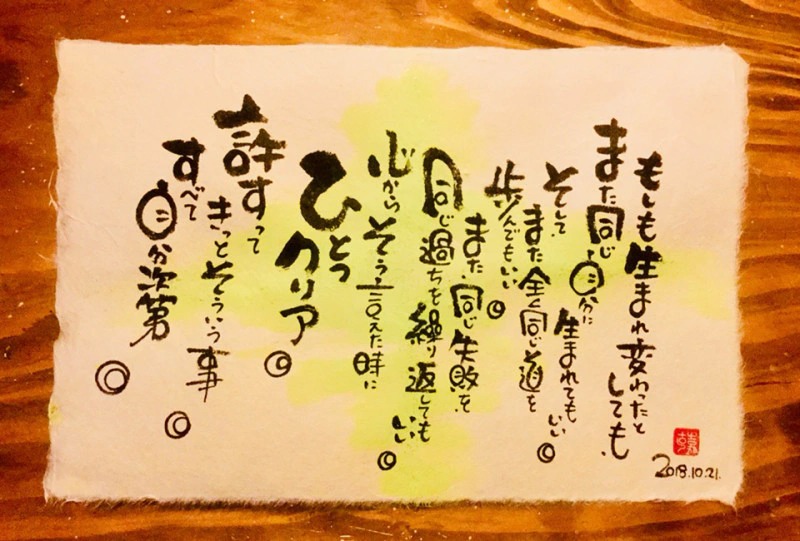 もしも生まれ変わったと
しても、
また同じ自分に
生まれてもいい。
そして、
また全く同じ道を
歩んでもいい。
また、同じ失敗を
同じ過ちを繰り返しても
いい。
心からそう言えた時に
ひとつ
クリア。
許すって
きっとそういう事。
すべて
自分次第。
2018.10.21.